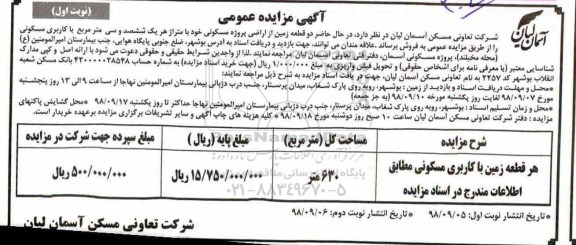 (نوبت اول)
آگهی مزایده عمومی
آسمان لیان
شرکت تعاونی مسکن آسمان لیان در نظر دارد، در حال حاضر دو قطعه زمین از اراضی پروژه مسکونی خود با متراژ هر یک ششصد و سی متر مربع با کاربری مسکونی
را از طریق مزایده عمومی به فروش برساند. علاقه مندان می توانند، جهت بازدید و دریافت اسناد به آدرس بوشهر، ضلع جنوبی پایگاه هوایی، جنب بیمارستان امیرالمومنین (ع)
(محله مخبلند)، پروژه مسکونی آسمان، دفتر فنی تعاونی آسمان لیان مراجعه نمایند. لذا از واجدین شرایط حقیقی و حقوقی دعوت می شود با ارائه اصل و کپی مدارک
شناسایی معتبر (یا معرفی نامه برای اشخاص حقوقی) و تحویل فیش واریزی به مبلغ ۱/۰۰۰/۰۰۰ ریال (جهت خرید اسناد مزایده) به شماره حساب ۴۲۰۰۰۰۰۲۸۵۴۸ بانک مسکن شعبه
انقلاب بوشهر کد ۲۲۵۷ به نام تعاونی مسکن آسمان لیان، جهت دریافت اسناد مزایده به شرح ذیل مراجعه نمایند:
•محل و مهلت دریافت اسناد و بازدید از زمین: بوشهر، روبه روی پارک شغاب، میدان پرستار، جنب درب دژبانی بیمارستان امیرالمومنین نهاجا از ساعت ۹ الی ۱۳ روز پنجشنبه
مورخ ۹۸/۰۹/۰۷ لغایت روز یکشنبه مورخه ۹۸/۰۹/۱۰ (به جز جمعه)
•محل و زمان تسلیم اسناد: بوشهر، روبه روی پارک شغاب، میدان پرستار، جنب درب دژبانی بیمارستان امیرالمومنین نهاجا حداکثر تا روز یکشنبه ۹۸/۰۹/۱۷ •محل گشایش پاکتهای
مزایده: دفتر شرکت تعاونی مسکن آسمان لیان ساعت ۱۰ صبح روز دوشنبه مورخ ۹۸/۰۹/۱۸ •کلیه هزینه های چاپ آگهی و سایر تشریفات برگزاری مزایده برعهده خریدار است.
شرح مزایده مساحت کل (متر مربع) مبلغ پایه (ریال) مبلغ سپرده جهت شرکت در مزایده
هر قطعه زمین با کاربری مسکونی مطابق اطلاعات مندرج در اسناد مزایده ۶۳۰ متر ۱۵/۷۵۰/۰۰۰/۰۰۰ ریال ۵۰۰/۰۰۰/۰۰۰ ریال
۰۲۱-۸۸۳۴۹۶۷۰-۵
• تاریخ انتشار نوبت اول: ۹۸/۰۹/۰۵ • تاریخ انتشار نوبت دوم: ۹۸/۰۹/۰۶
شرکت تعاونی مسکن آسمان لیان